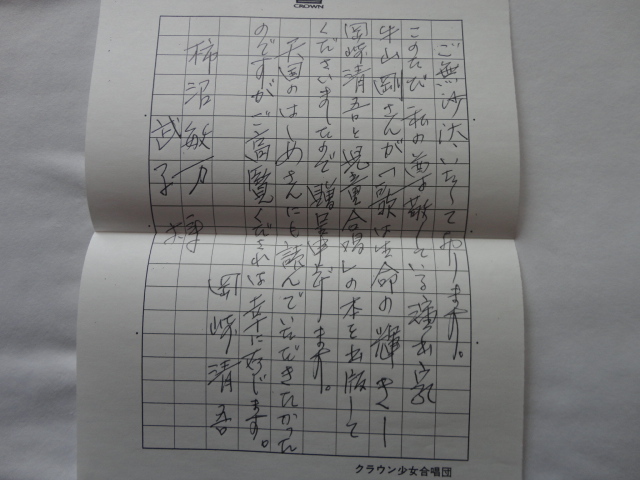 CROWN
ご無沙汰いたしております。
このたび 私の尊敬している演出家
牛山剛さんが「歌は生命の輝きー
岡崎清吾と児童合唱」の本を出版して
くださいましたので贈呈申します。
天国のはじめさんにも読んでいただきたかった
のですがご高覧くだされば幸に存じます。
岡崎清吾
柿沼敏 様
武子 〃
クラウン少女合唱団